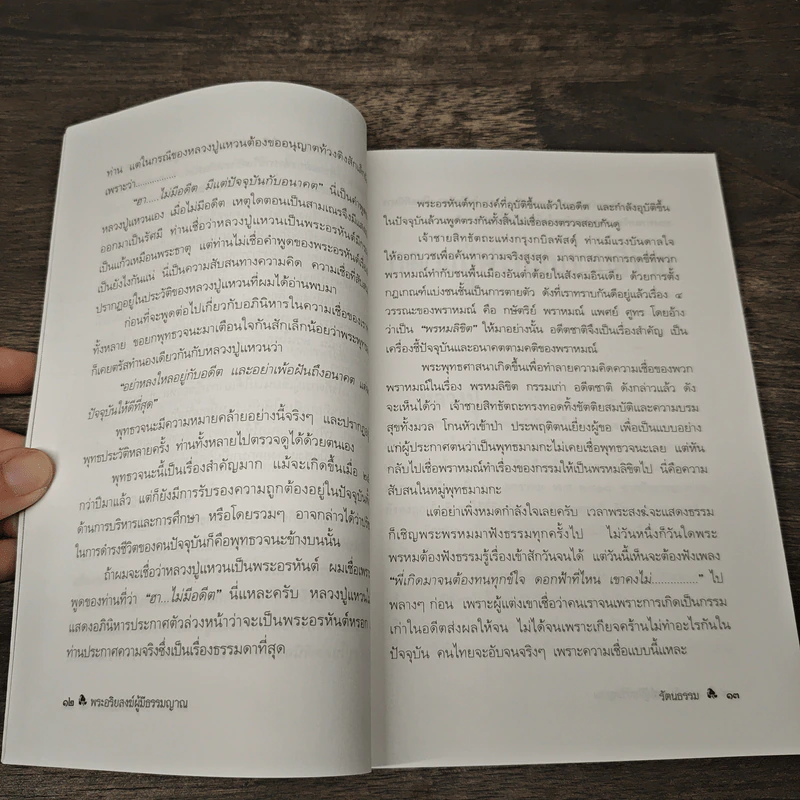 ท่าน แต่ในกรณีของหลวงปู่แหวนต้องขออนุญาตท้วงติงสักเล็ก
เพราะว่า..............
“ฮา...ไม่มีอดีต มีแต่ปัจจุบันกับอนาคต” นี่เป็นคำพูด
หลวงปู่แหวนเอง เมื่อไม่มีอดีต เหตุใดตอนเป็นสามเณรจึงมี
ออกมาเป็นรัศมี ท่านเชื่อว่าหลวงปู่แหวนเป็นพระอรหันต์มี
เป็นแก้วเหมือนพระธาตุ แต่ท่านไม่เชื่อคำพูดของพระอรหันต์
เป็นยังไงกันแน่ นี่เป็นความสับสนทางความคิด ความเชื่อที่
ปรากฏอยู่ในประวัติของหลวงปู่แหวนที่ผมได้อ่านพบมา
ก่อนที่จะพูดต่อไปเกี่ยวกับอภินิหารในความเชื่อของ
ทั้งหลาย ขอยกพุทธวจนะมาเตือนใจกันสักเล็กน้อยว่าพระพุทธ
ก็เคยตรัสทำนองเดียวกันกับหลวงปู่แหวนว่า
“อย่าหลงใหลอยู่กับอดีต และอย่าเพ้อฝันถึงอนาคต
ปัจจุบันให้ดีที่สุด”
พุทธวจนะมีความหมายคล้ายอย่างนี้จริงๆ และปรากฏ
พุทธประวัติหลายครั้ง ท่านทั้งหลายไปตรวจดูได้ด้วยตนเอง
พุทธวจนะนี้เป็นเรื่องสำคัญมาก แม้จะเกิดขึ้นเมื่อ
กว่าปีมาแล้ว แต่ก็ยังมีการรับรองความถูกต้องอยู่ในปัจจุบัน
ด้านการบริหารและการศึกษา หรือโดยรวมๆ อาจกล่าวได้ว่า
ในการดำรงชีวิตของคนปัจจุบันก็คือพุทธวจนะข้างบนนั้น
ถ้าผมจะเชื่อว่าหลวงปู่แหวนเป็นพระอรหันต์ ผมเชื่อ
พูดของท่านที่ว่า “ฮา...ไม่มีอดีต” นี่แหละครับ หลวงปู่แหวน
แสดงอภินิหารประกาศตัวล่วงหน้าว่าจะเป็นพระอรหันต์หรอก
ท่านประกาศความจริงซึ่งเป็นเรื่องธรรมดาที่สุด
๑๒ พระอริยสงฆ์ผู้มีธรรมญาณ
พระอรหันต์ทุกองค์ที่อุบัติขึ้นแล้วในอดีต และกำลังอุบัติขึ้น
ในปัจจุบันล้วนพูดตรงกันทั้งสิ้นไม่เชื่อลองตรวจสอบกันดู
เจ้าชายสิทธัตถะแห่งกรุงกบิลพัสดุ์ ท่านมีแรงบันดาลใจ
ให้ออกบวชเพื่อค้นหาความจริงสูงสุด มาจากสภาพการกดขี่ที่พวก
พราหมณ์ทำกับชนพื้นเมืองอันต่ำต้อยในสังคมอินเดีย ด้วยการตั้ง
กฎเกณฑ์แบ่งชนชั้นเป็นการตายตัว ดังที่เราทราบกันดีอยู่แล้วเรื่อง ๔
วรรณะของพราหมณ์ คือ กษัตริย์ พราหมณ์ แพศย์ ศูทร โดยอ้าง
ว่าเป็น “พรหมลิขิต” ให้มาอย่างนั้น อดีตชาติจึงเป็นเรื่องสำคัญ เป็น
เครื่องชี้ปัจจุบันและอนาคตตามคติของพราหมณ์
พระพุทธศาสนาเกิดขึ้นเพื่อทำลายความคิดความเชื่อของพวก
พราหมณ์ในเรื่อง พรหมลิขิต กรรมเก่า อดีตชาติ ดังกล่าวแล้ว ดัง
จะเห็นได้ว่า เจ้าชายสิทธัตถะทรงทอดทิ้งขัตติยสมบัติและความบรม
สุขทั้งมวล โกนหัวเข้าป่า ประพฤติตนเยี่ยงผู้ขอ เพื่อเป็นแบบอย่าง
แก่ผู้ประกาศตนว่าเป็นพุทธมามกะไม่เคยเชื่อพุทธวจนะเลย แต่หัน
กลับไปเชื่อพราหมณ์ทำเรื่องของกรรมให้เป็นพรหมลิขิตไป นี่คือความ
สับสนในหมู่พุทธมามกะ
แต่อย่าเพิ่งหมดกำลังใจเลยครับ เวลาพระสงฆ์จะแสดงธรรม
ก็เชิญพระพรหมมาฟังธรรมทุกครั้งไป ไม่วันหนึ่งก็วันใดพระ
พรหมต้องฟังธรรมรู้เรื่องเข้าสักวันจนได้ แต่วันนี้เห็นจะต้องฟังเพลง
“พี่เกิดมาจนต้องทนทุกข์ใจ ดอกฟ้าที่ไหน เขาคงไม่..............” ไป
พลางๆ ก่อน เพราะผู้แต่งเขาเชื่อว่าคนเราจนเพราะการเกิดเป็นกรรม
เก่าในอดีตส่งผลให้จน ไม่ได้จนเพราะเกียจคร้านไม่ทำอะไรกันใน
ปัจจุบัน คนไทยจะอับจนจริงๆ เพราะความเชื่อแบบนี้แหละ
รัตนธรรม ๑๓